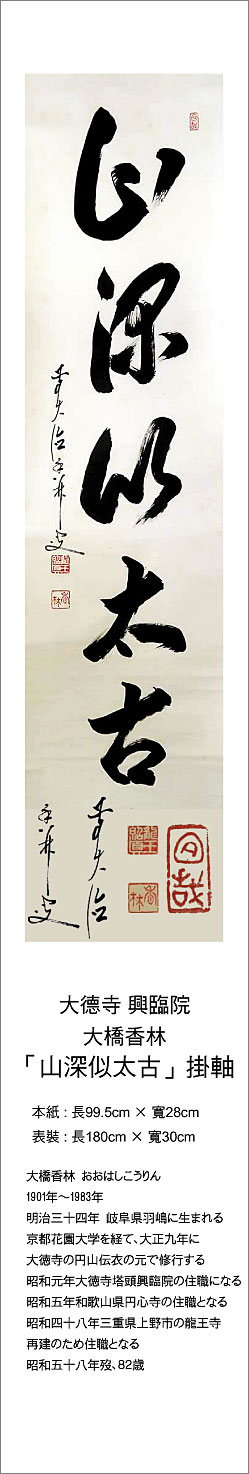 山深似太古
香林
大徳寺 興臨院
大橋香林
「山深似太古」掛軸
本紙：長99.5cm × 寬28cm
表裝：長180cm × 寬30cm
大橋香林 おおはしこうりん
1901年～1983年
明治三十四年 岐阜県羽嶋に生まれる
京都花園大学を経て、大正九年に
大徳寺の円山伝衣の元で修行する
昭和元年大徳寺塔頭興臨院の住職になる
昭和五年和歌山県円心寺の住職となる
昭和四十八年三重県上野市の龍王寺
再建のため住職となる
昭和五十八年歿、82歳